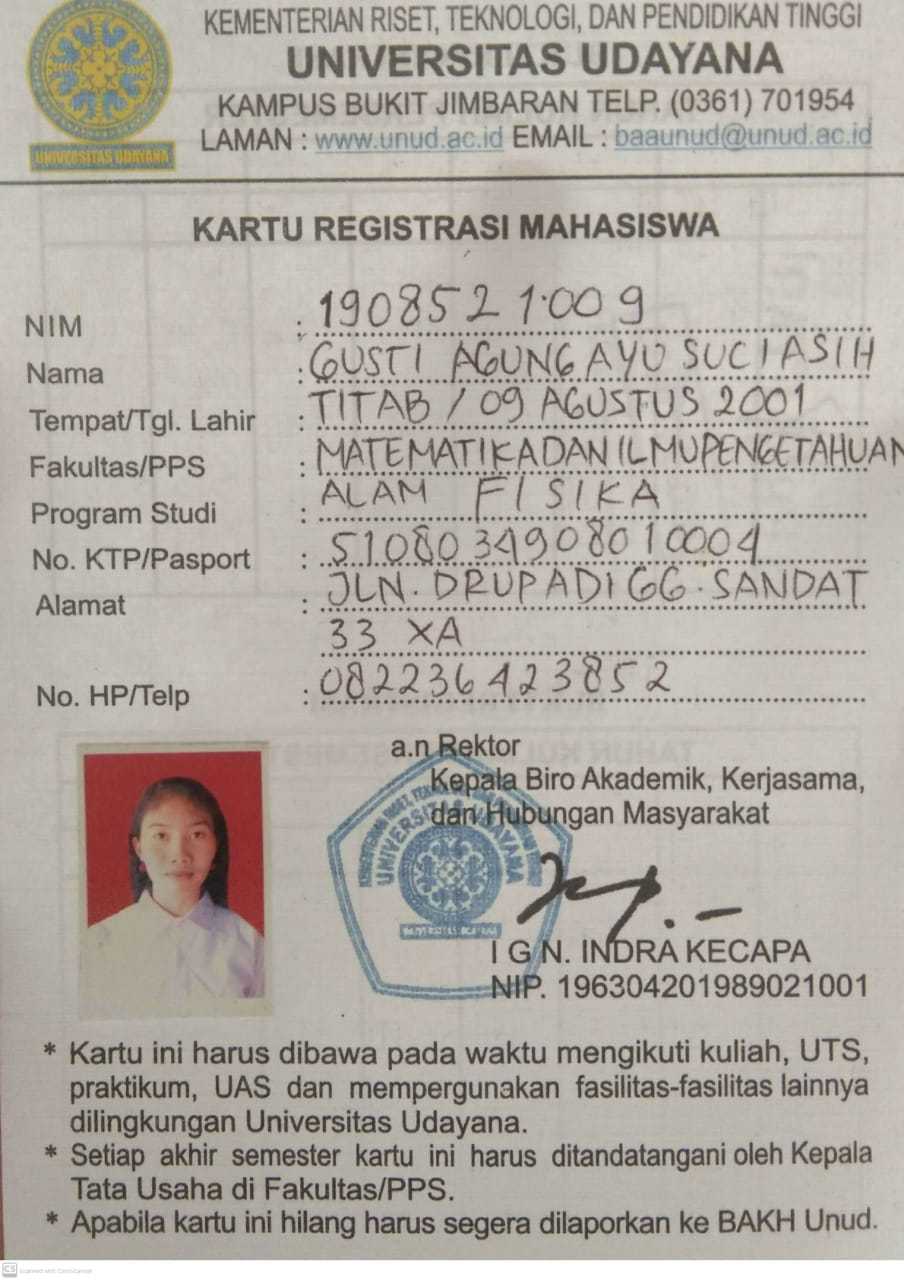 KEMENTERIAN RISET, TEKNOLOGI, DAN PENDIDIKAN TINGGI
UNIVERSITAS UDAYANA
KAMPUS BUKIT JIMBARAN TELP. (0361) 701954
LAMAN : www.unud.ac.id EMAIL : baaunud@unud.ac.id
UNIVERSITAS UDAYANA
KARTU REGISTRASI MAHASISWA
NIM : 1908521009
Nama : GUSTI AGUNG AYU SUCIASIH
Tempat/Tgl. Lahir : TITAB / 09 AGUSTUS 2001
Fakultas/PPS : MATEMATIKA DAN ILMU PENGETAHUAN
Program Studi : ALAM FISIKA
No. KTP/Pasport : 5108034908010004
Alamat : JLN. DRUPADI GG. SANDAT
33 XA
No. HP/Telp : 082236423852
a.n Rektor
Kepala Biro Akademik, Kerjasama,
dan Hubungan Masyarakat
UNIVERSITAS UDAYANA
UNIVERSITAS UDAYANA
I G N. INDRA KECAPA
NIP. 196304201989021001
* Kartu ini harus dibawa pada waktu mengikuti kuliah, UTS,
praktikum, UAS dan mempergunakan fasilitas-fasilitas lainnya
dilingkungan Universitas Udayana.
* Setiap akhir semester kartu ini harus ditandatangani oleh Kepala
Tata Usaha di Fakultas/PPS.
* Apabila kartu ini hilang harus segera dilaporkan ke BAKH Unud.
CS Scanned with CamScanner